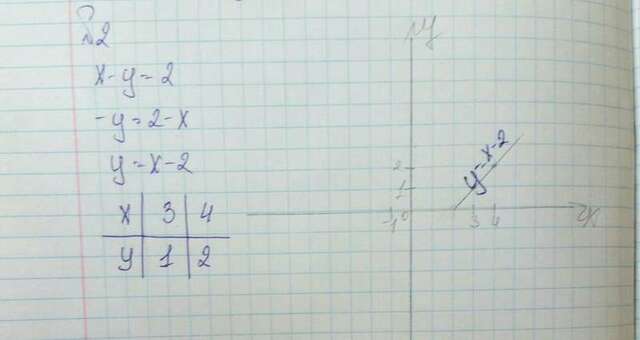 №2
x-y=2
-y=2-x
y=x-2
x 3 4
y 1 2
y
y=x-2
2
1
-1 0 3 4 x